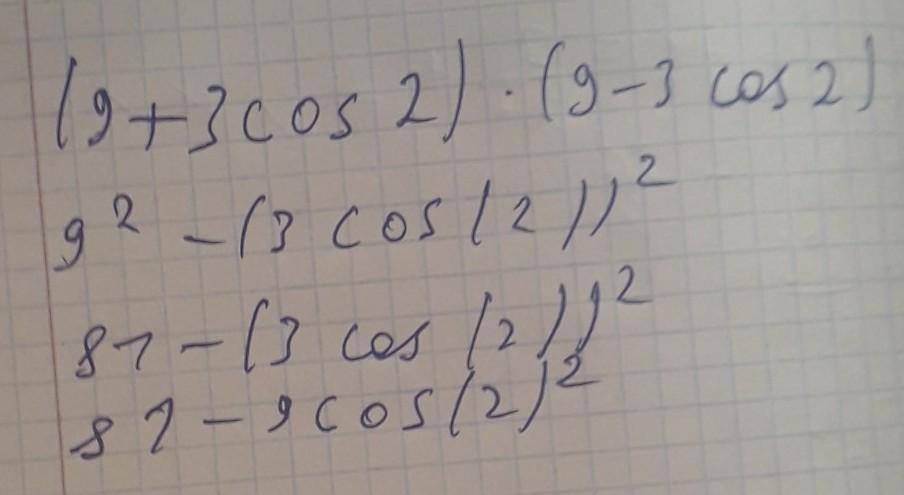 (9+3cos 2)·(9-3 cos 2)
9² -(3 cos(2))²
81-(3 cos (2))²
81-9cos(2)²